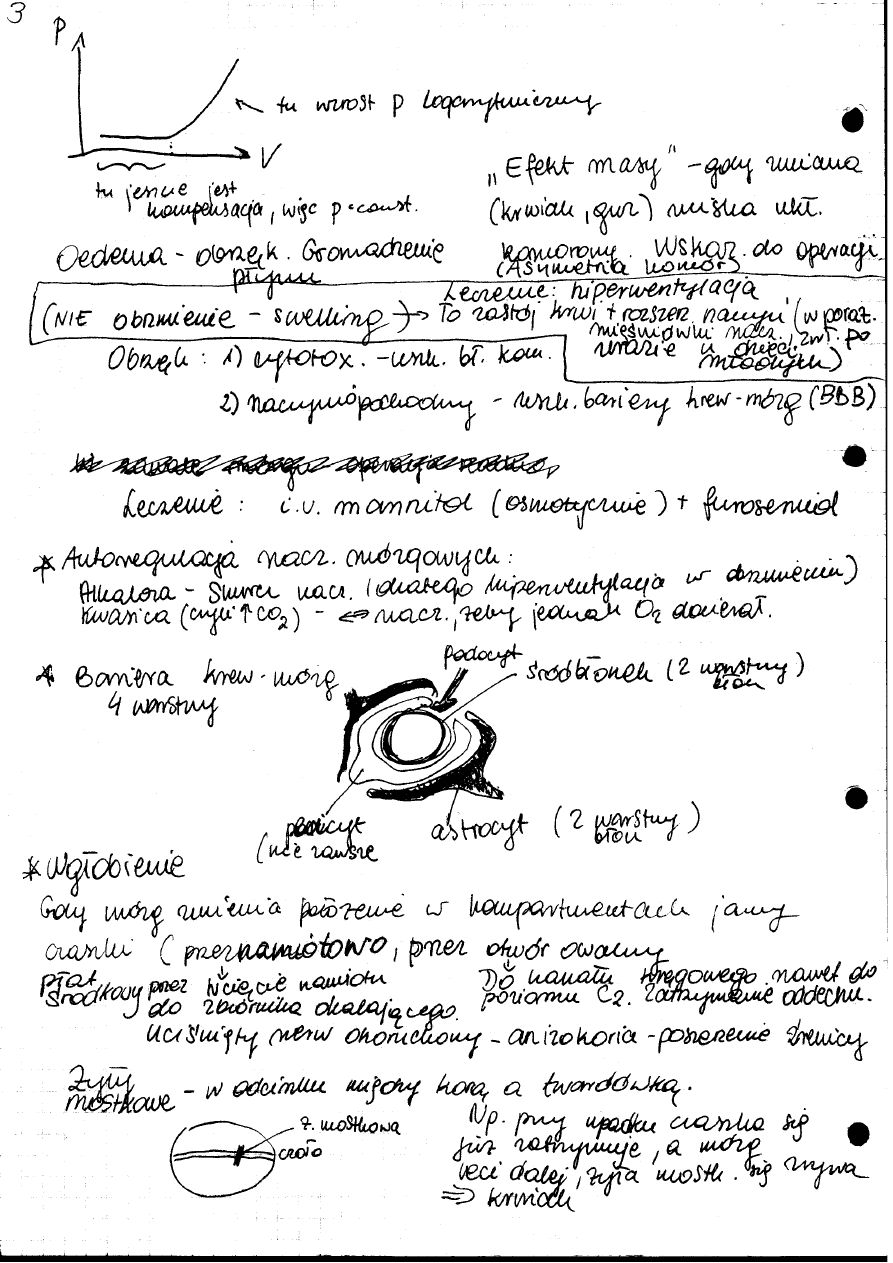 3
P
← tu wzrost p logarytmiczny
V
tu jeszcze jest
kompensacja, więc p=const.
„Efekt masy" – gdy zmiana
(krwiak, guz) niszka ukł.
komorowy. Wskaz. do operacji
(Asymetria komór)
Oedema – obrzęk. Gromadzenie
płynu
(NIE obrzmienie – swelling) → Leczenie: hiperwentylacja
To zastój krwi + rozszerz. naczyń, (w poraż.
mięśniówki nacz., zwł. po
urazie u dzieci,
młodych)
Obrzęk : 1) cytotox. – uszk. bł. kom.
2) naczyniopochodny – uszk. bariery krew-mózg (BBB)
Leczenie : i.v. mannitol (osmotycznie) + furosemid
* Autoregulacja nacz. mózgowych :
Alkaloza – skurcz nacz. (dlatego hiperwentylacja w obrzmieniu)
Kwasica (czyli ↑CO2) – ⇔ nacz., żeby jednak O2 docierał.
* Bariera krew-mózg
4 warstwy
podocyt
śródbłonek (2 warstwy
błon)
perycyt
(nie zawsze
astrocyt (2 warstwy
błon)
* Wgłobienie
Gdy mózg zmienia położenie w kompartmentach jamy
czaszki (przeznamiotowo, przez otwór owalny
płat
środkowy przez wcięcie namiotu
do zbiornika okalającego.
Do kanału kręgowego nawet do
poziomu C2. Zatrzymanie oddechu.
Uciśnięty nerw okoruchowy – anizokoria – poszerzenie źrenicy
Żyły
mostkowe – w odcinku między korą a twardówką.
ż. mostkowa
czoło
Np. przy upadku czaszka się
już zatrzymuje, a mózg
leci dalej, żyła mostk. się zrywa
⇒ krwiak